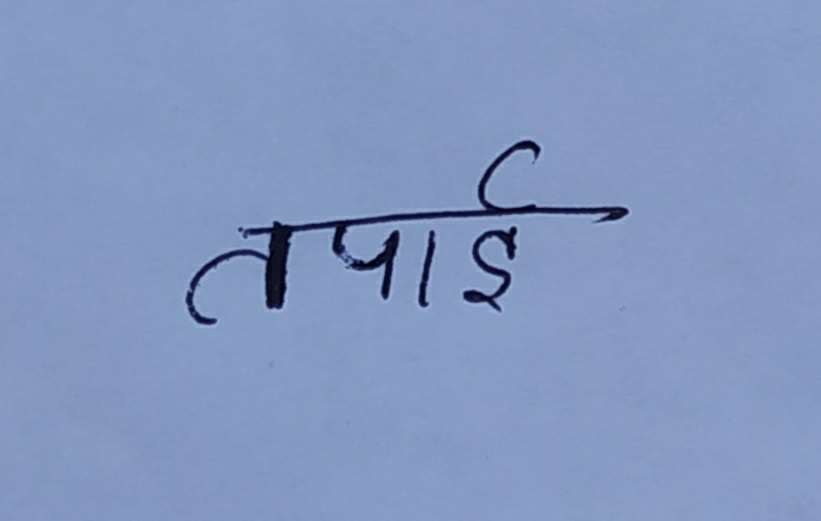 तपाई